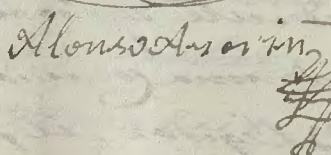 Alonso Asorin